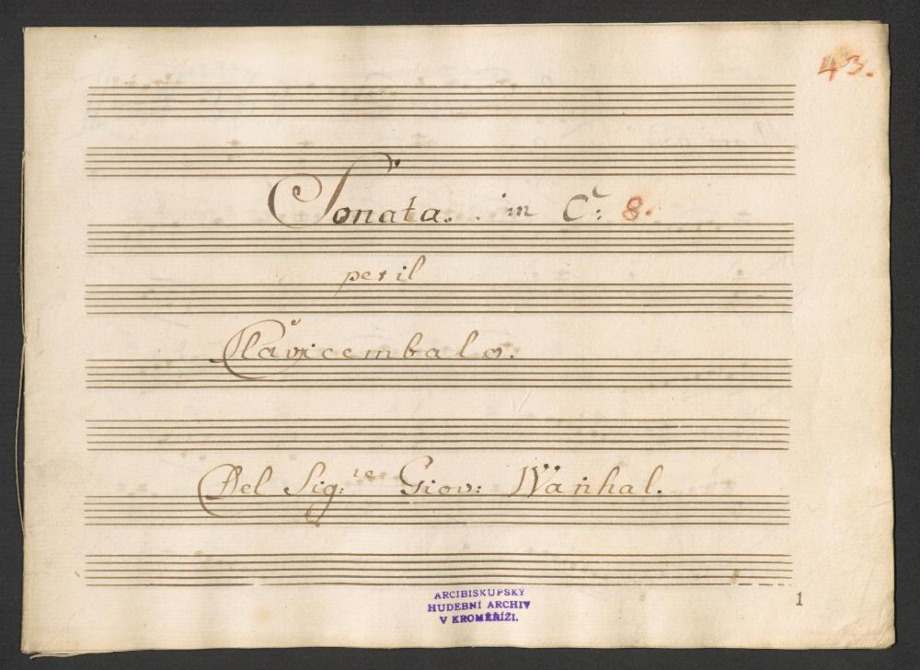 43.
Sonata. in C: 8.
per il
Clavicembalo.
Del Sig:re Giov: Wanhal.
ARCIBISKUPSKÝ
HUDEBNÍ ARCHIV
V KROMĚŘÍŽI.
1